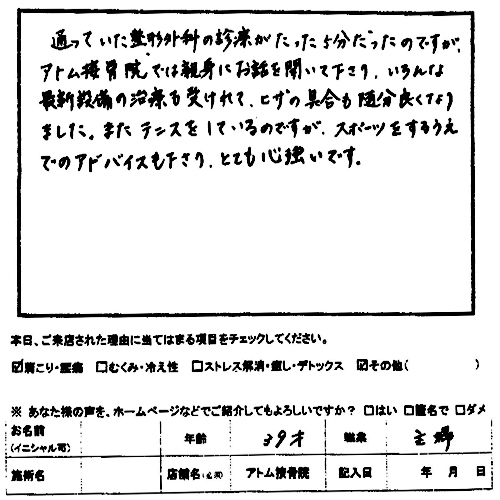 通っていた整形外科の診療がたった5分だったのですが、
アトム接骨院では親身にお話を聞いて下さり、いろんな
最新設備の治療も受けれて、ヒザの具合も随分良くなり
ました。またテニスをしているのですが、スポーツをするうえ
でのアドバイスも下さり、とても心強いです。
本日、ご来店された理由に当てはまる項目をチェックしてください。
☑肩こり・腰痛 □むくみ・冷え性 □ストレス解消・癒し・デトックス ☑その他( )
※ あなた様の声を、ホームページなどでご紹介してもよろしいですか? □はい □匿名で □ダメ
お名前 (イニシャル可) 年齢 39才 職業 主婦
施術名 店舗名 アトム接骨院 記入日 年 月 日